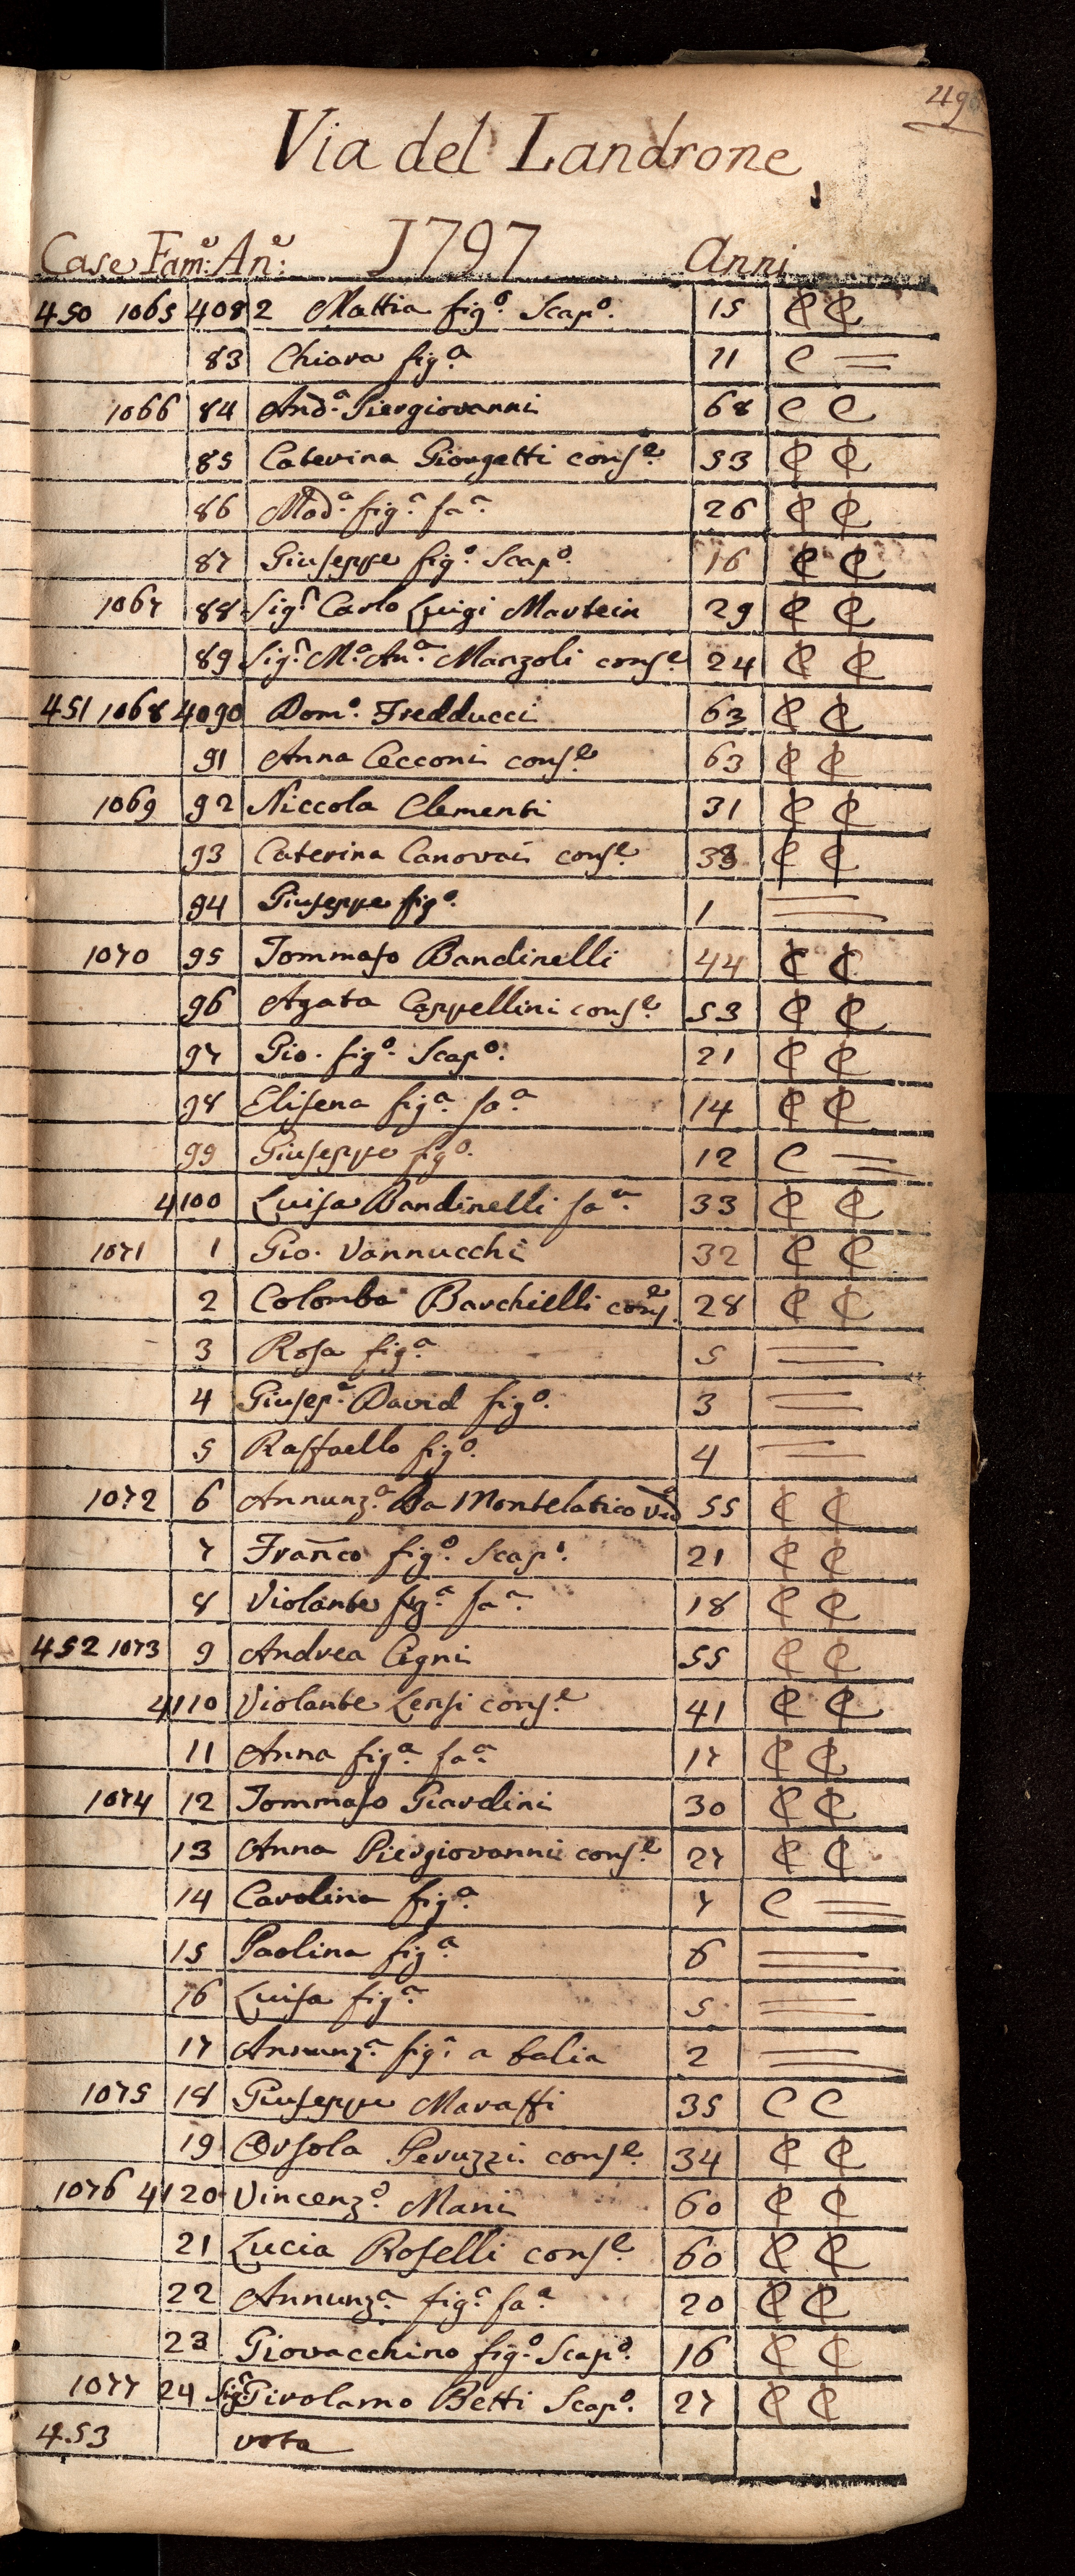 49
Via del Landrone
1797
Case Fam:e An:e Anni
450 1065 4082 Mattia fig.o Scap.o 15 C C
83 Chiara fig.a 11 C =
1066 84 And.a Piergiovanni 68 C C
85 Caterina Giorgetti cons.e 53 C C
86 Mad.a fig.a fa.a 26 C C
87 Giuseppe fig.o Scap.o 16 C C
1067 88 Sig.r Carlo Luigi Martein 29 C C
89 Sig.ra M.a An.a Manzoli cons.e 24 C C
451 1068 4090 Dom.o Fredducci 63 C C
91 Anna Cecconi cons.e 63 C C
1069 92 Niccola Clementi 31 C C
93 Caterina Canovai cons.e 33 C C
94 Giuseppe fig.o 1 =
1070 95 Tommaso Bandinelli 44 C C
96 Agata Cappellini cons.e 53 C C
97 Gio. fig.o Scap.o 21 C C
98 Elisena fig.a fa.a 14 C C
99 Giuseppe fig.o 12 C =
4100 Luisa Bandinelli fa.a 33 C C
1071 1 Gio. Vannucchi 32 C C
2 Colomba Barchielli cons.e 28 C C
3 Rosa fig.a 5 =
4 Giusep.e David fig.o 3 =
5 Raffaello fig.o 4 =
1072 6 Annunz.a Da Montelatico Va 55 C C
7 Franco fig.o Scap.o 21 C C
8 Violante fig.a fa.a 18 C C
452 1073 9 Andrea Cigni 55 C C
4110 Violante Lensi cons.e 41 C C
11 Anna fig.a fa.a 17 C C
1074 12 Tommaso Giardini 30 C C
13 Anna Piergiovanni cons.e 27 C C
14 Carolina fig.a 7 C =
15 Paolina fig.a 6 =
16 Luisa fig.a 5 =
17 Annunz.a fig.a a balia 2 =
1075 18 Giuseppe Maraffi 35 C C
19 Orsola Peruzzi cons.e 34 C C
1076 4120 Vincenz.o Mani 60 C C
21 Lucia Roselli cons.e 60 C C
22 Annunz.a fig.a fa.a 20 C C
23 Giovacchino fig.o Scap.o 16 C C
1077 24 Sig.r Girolamo Betti Scap.o 27 C C
453 vota